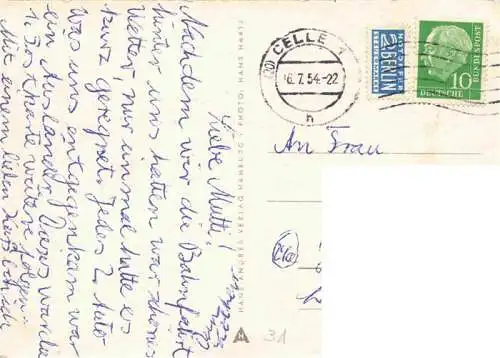 Liebe Mutti!
Nachdem wir die Bahnfahrt
hinter uns hatten war schönes
Wetter, nur einmal hatte es
kurz geregnet. Jedes 2. Auto
was uns entgegenkam war
ein Ausländer. Dieses war die
1. Fotokarte weitere folgen.
Mit einem lieben
HANS ANDRES VERLAG HAMBURG PHOTO: HANS HARTZ
(20) CELLE 1
6.7.54.-22
h
NOTOPFER
2 BERLIN
STEUERMARKE
DEUTSCHE BUNDESPOST
10
An Frau
31